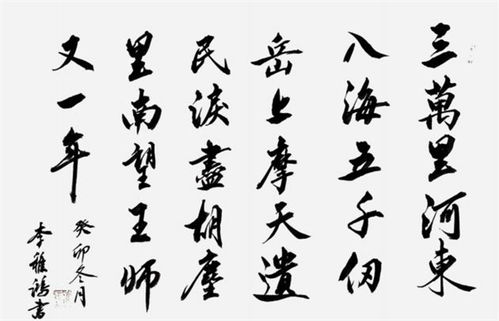 三萬里河東
入海五千仞
岳上摩天遺
民淚盡胡塵
里南望王師
又一年
癸卯冬月
李雅書